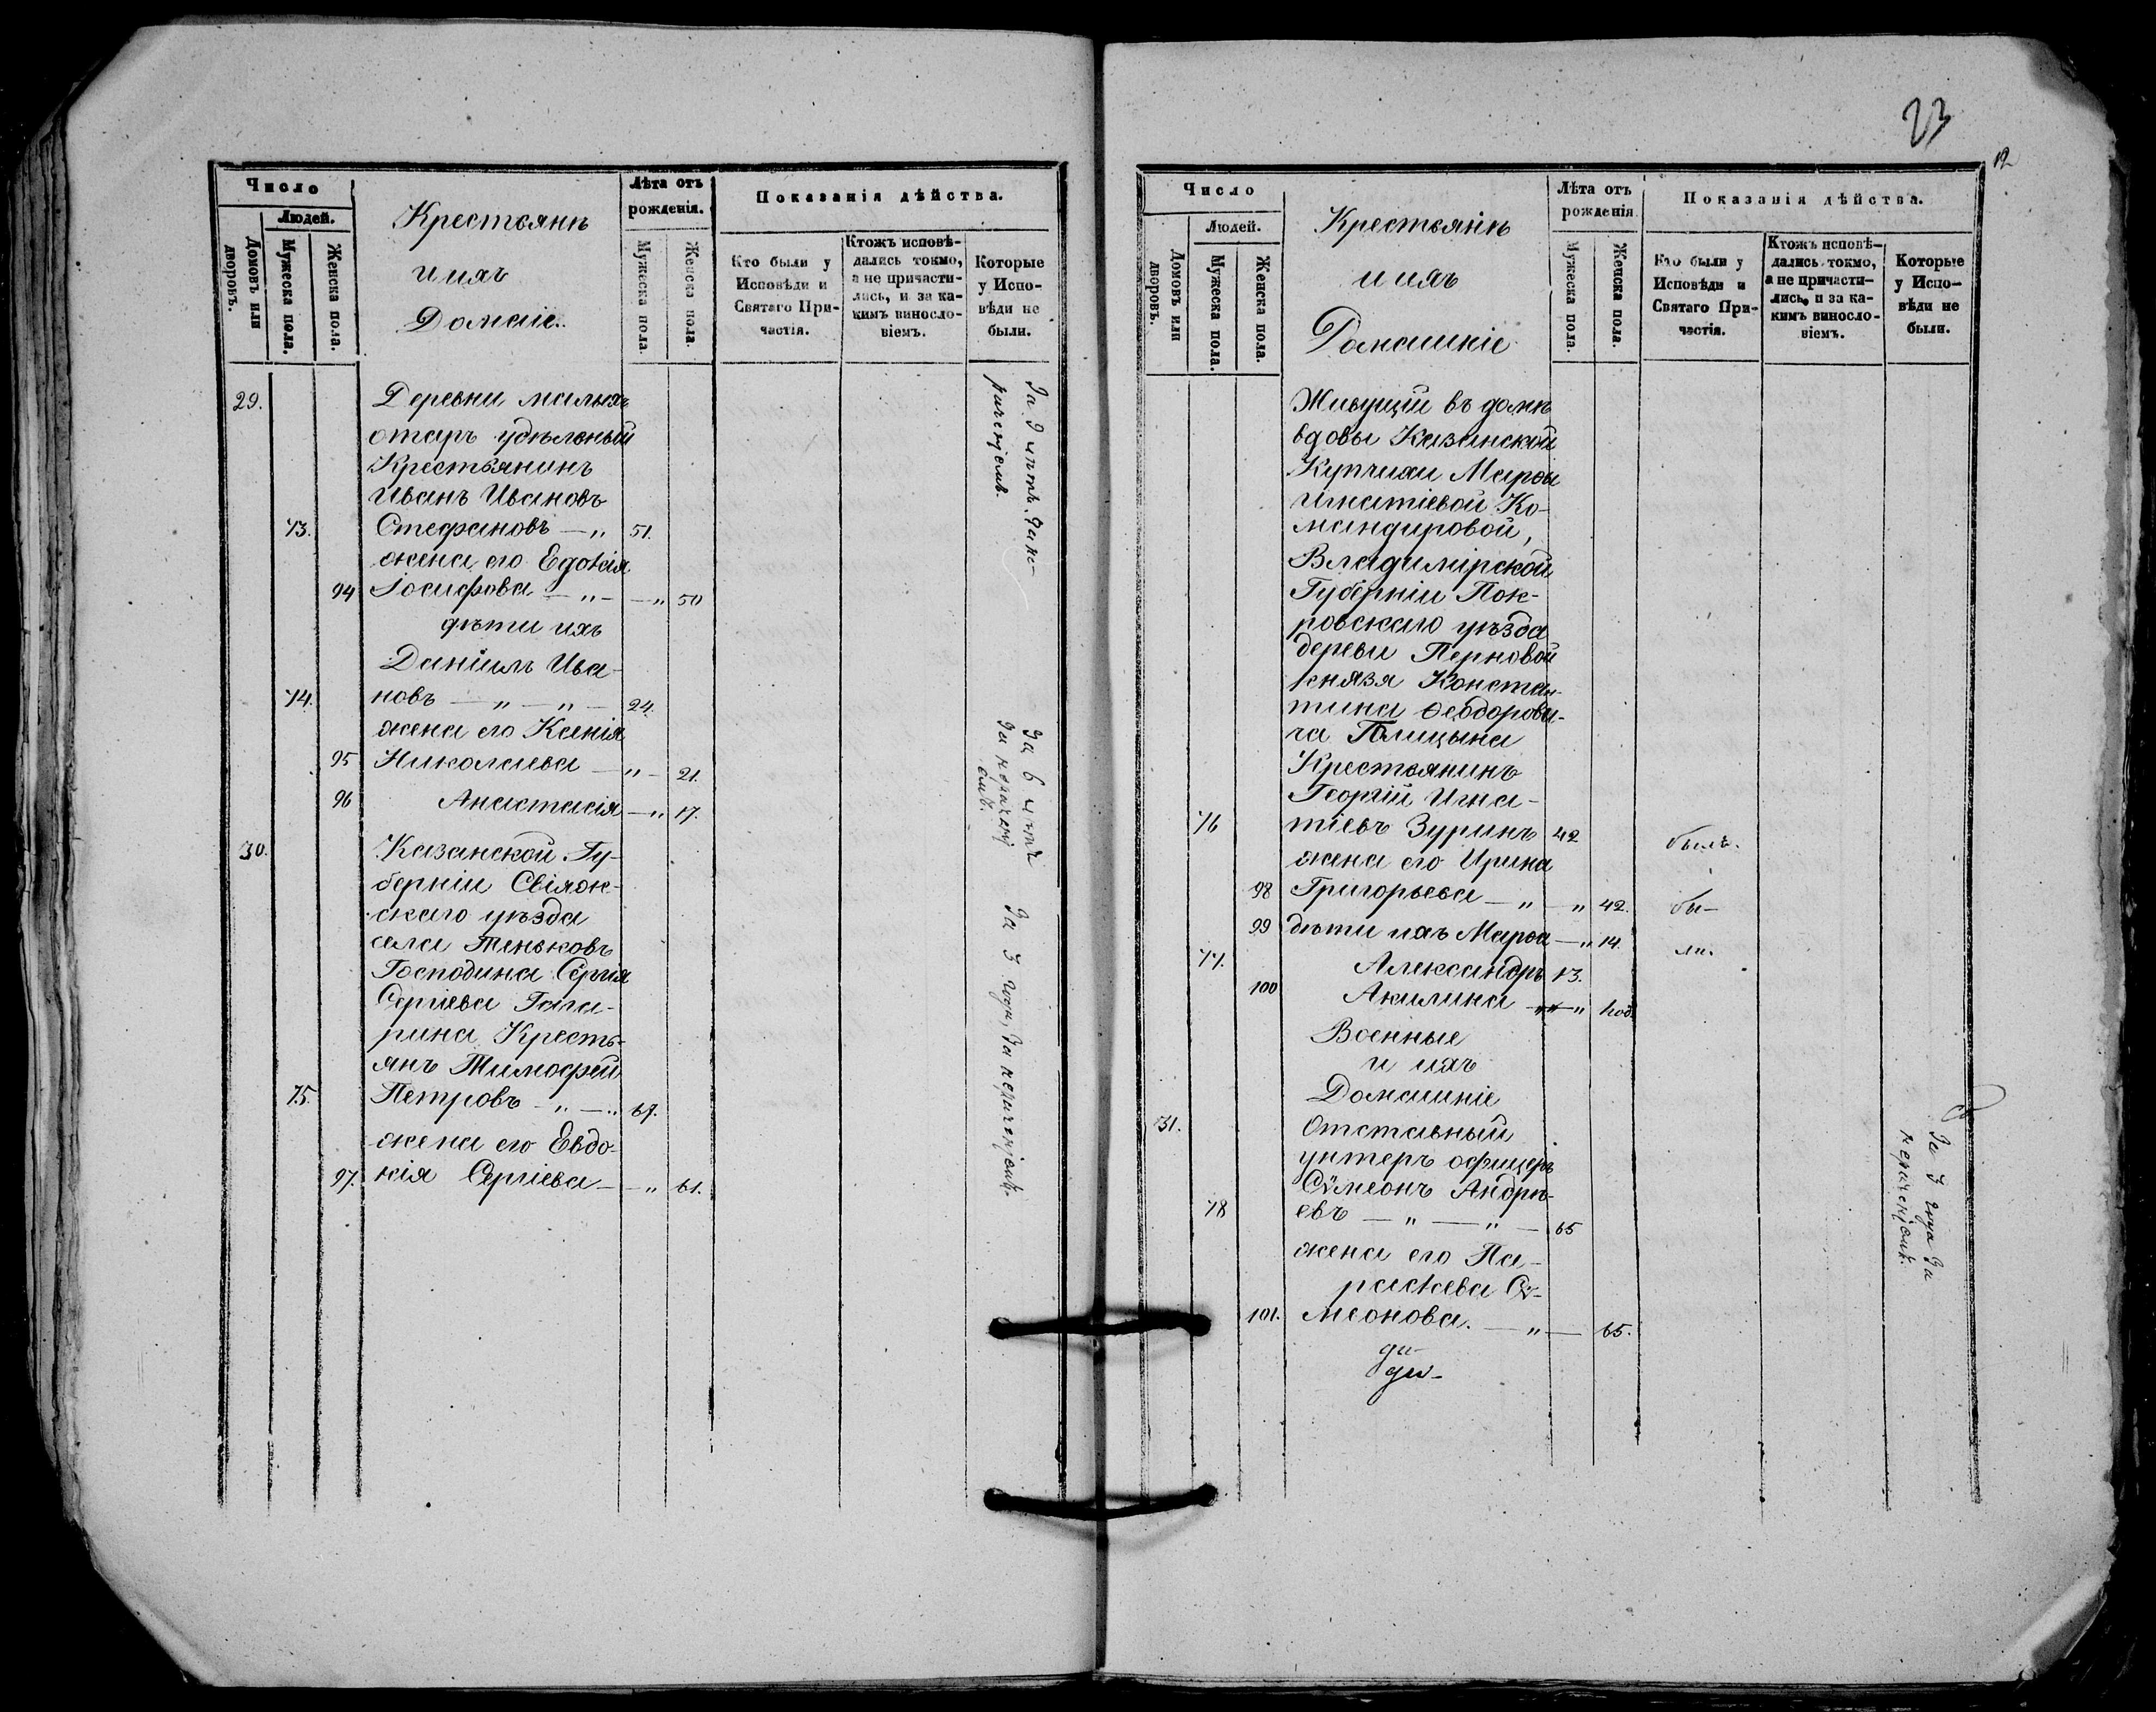 Число
Людей.
Домовъ или дворовъ.
Мужеска пола.
Женска пола.
Крестьянѣ
и ихъ
Домаіе.
Лѣта отъ рожденія.
Мужеска пола.
Женска пола.
Показанія дѣйства.
Кто были у Исповѣди и Святаго Причастія.
Ктожъ исповѣдались токмо, а не причастились, и за какимъ винословіемъ.
Которые у Исповѣди не были.
29. Деревни малыхъ
отаръ удѣльный
Крестьянинъ
Иванъ Ивановъ
73. Стефановъ — „ 51.
жена его Едокія
94 Іосифова — „ — „ 50
дѣти ихъ
Даніилъ Ива-
74. новъ — „ — „ — 24.
жена его Ксенія
95 Николаева — „ — 21.
96 Анастасія — „ 17.
30. Казанской Гу-
берніи Свіяж-
скаго уѣзда
села Теньковъ
Господина Сергія
Сергіева Гага-
рина Кресть-
янъ Тимофей
75. Петровъ — „ — „ 67.
жена его Евдо-
97. кія Сергіева — „ 61.
За 3 года, за нерачен̧іемъ.
23
12
Число
Людей.
Домовъ или дворовъ.
Мужеска пола.
Женска пола.
Крестьянѣ
и ихъ
Домашніе
Лѣта отъ рожденія
Мужеска пола.
Женска пола.
Показанія дѣйства.
Кто были у Исповѣди и Святаго Причастія.
Ктожъ исповѣдались токмо, а не причастились, и за какимъ винословіемъ.
Которые у Исповѣди не были.
Живущіи въ домѣ
вдовы Казанской
Купчихи Марѳы
Игнатіевой Ко-
мандировой,
Владимірской
Губерніи Пок-
ровскаго уѣзда
деревни Перновой
князя Констан-
тина Ѳеодорови-
ча Голицына
Крестьянинъ
Георгій Игна-
76 тіевъ Зуринъ 42 былъ.
жена его Ирина
98 Григорьева — „ — „ 42. бы-
99 дѣти ихъ Марѳа — „ 14. ли.
77. Александръ 13.
100 Акилина — „ — „ год.
Военные
и ихъ
Домашніе
31. Отставный
унтеръ офицеръ
Сѵмеонъ Андрѣ-
78 евъ — „ — „ — 65
жена его Па-
раскева Сѵ-
101. меонова. — „ — 65.
За 3 года за
нераченіемъ.